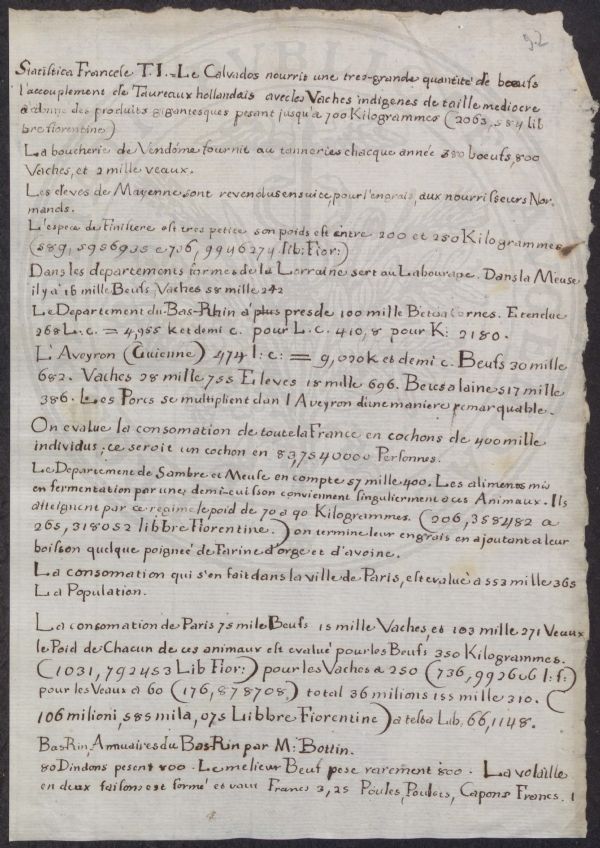 92
Statistica Francese T. I. - Le Calvados nourrit une tres-grande quantité de bœufs
l'accouplement de Taureaux hollandais avec les Vaches indigenes de taille mediocre
a donné des produits gigantesques pesant jusqu'a 700 Kilogrammes (2063, 584 lib
bre fiorentine)
La boucherie de Vendôme fournit au tanneries chacque année 380 boeufs, 800
Vaches, et 2 mille veaux.
Les eleves de Mayenne, sont revendus ensuite pour l'engrais, aux nourrisseurs Nor
mands.
L'espece de Finistere est tres petite son poids est entre 200 et 250 Kilogrammes
(589, 5956935 e 736, 9946274 lib: Fior:)
Dans les departements formés de la Lorraine sert au Labourage. Dans la Meuse
il y a 16 mille Beufs, Vaches 58 mille 242
Le Departement du Bas-Rhin à plus pres de 100 mille Betes a Cornes. Etendue
268 L. c. = 4,955 k et demi c. pour L. C. 410,8 pour K: 2180.
L'Aveyron (Guienne) 474 l: c: = 9,020 k et demi c. Beufs 30 mille
682. Vaches 28 mille 755 Eleves 18 mille 696. Betes a laine 517 mille
386. Les Porcs se multiplient dan l Aveyron d'une maniere remarquable.
On evalue la consomation de toute la France en cochons de 400 mille
individus; ce seroit un cochon en 83,7540000 Personnes.
Le Departement de Sambre et Meuse en compte 57 mille 400. Les alimens mis
en fermentation par une demi-cuisson conviennent singulierment a ces Animaux. Ils
atteignent par ce regime le poid de 70 a 90 Kilogrammes. (206, 358482 a
265, 318052 libbre Fiorentine.) on termine leur engrais en ajoutant a leur
boisson quelque poignée de Farine d'orge et d'avoine.
La consomation qui s'en fait dans la ville de Paris, est evalué a 553 mille 365
La Population.
La consomation de Paris 75 mile Beufs 15 mille Vaches, et 103 mille 271 Veaux
le Poid de Chacun de ces animaux est evalué pour les Beufs 350 Kilogrammes.
(1031, 792453 Lib Fior:) pour les Vaches a 250 (736, 992616 l: f:)
pour les Veaux a 60 (176, 878708.) total 36 milions 155 mille 310. (
106 milioni, 585 mila, 075 Liibbre Fiorentine) a testa Lib. 66, 1148.
Bas-Rin, Annuaires du Bas-Rin par M: Bottin.
80 Dindons pesent 800. Le melieur Beuf pese rarement 800. La volaille
en deux faisons est formé et vaut Francs 3,25 Poules, Poulets, Capons Francs. 1